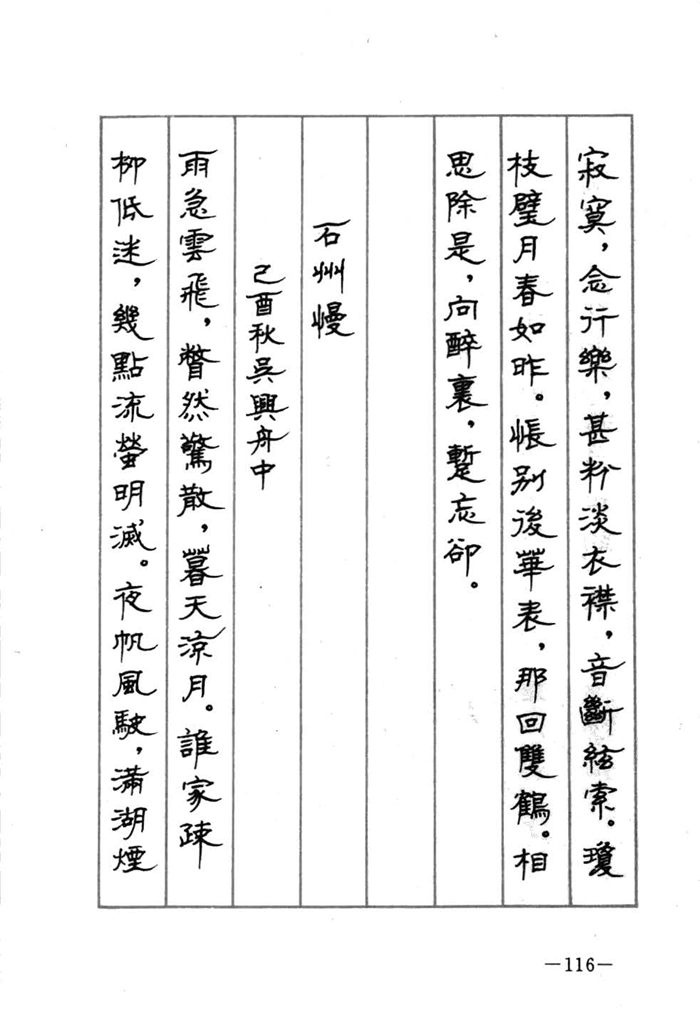 寂寞，念行樂，甚粉淡衣襟，音斷絃索。瓊
枝璧月春如昨。悵别後華表，那回雙鶴。相
思除是，向醉裏，蹔忘卻。
石州慢
己酉秋吳興舟中
雨急雲飛，瞥然驚散，暮天涼月。誰家疎
柳低迷，幾點流螢明滅。夜帆風駛，滿湖煙
—116—